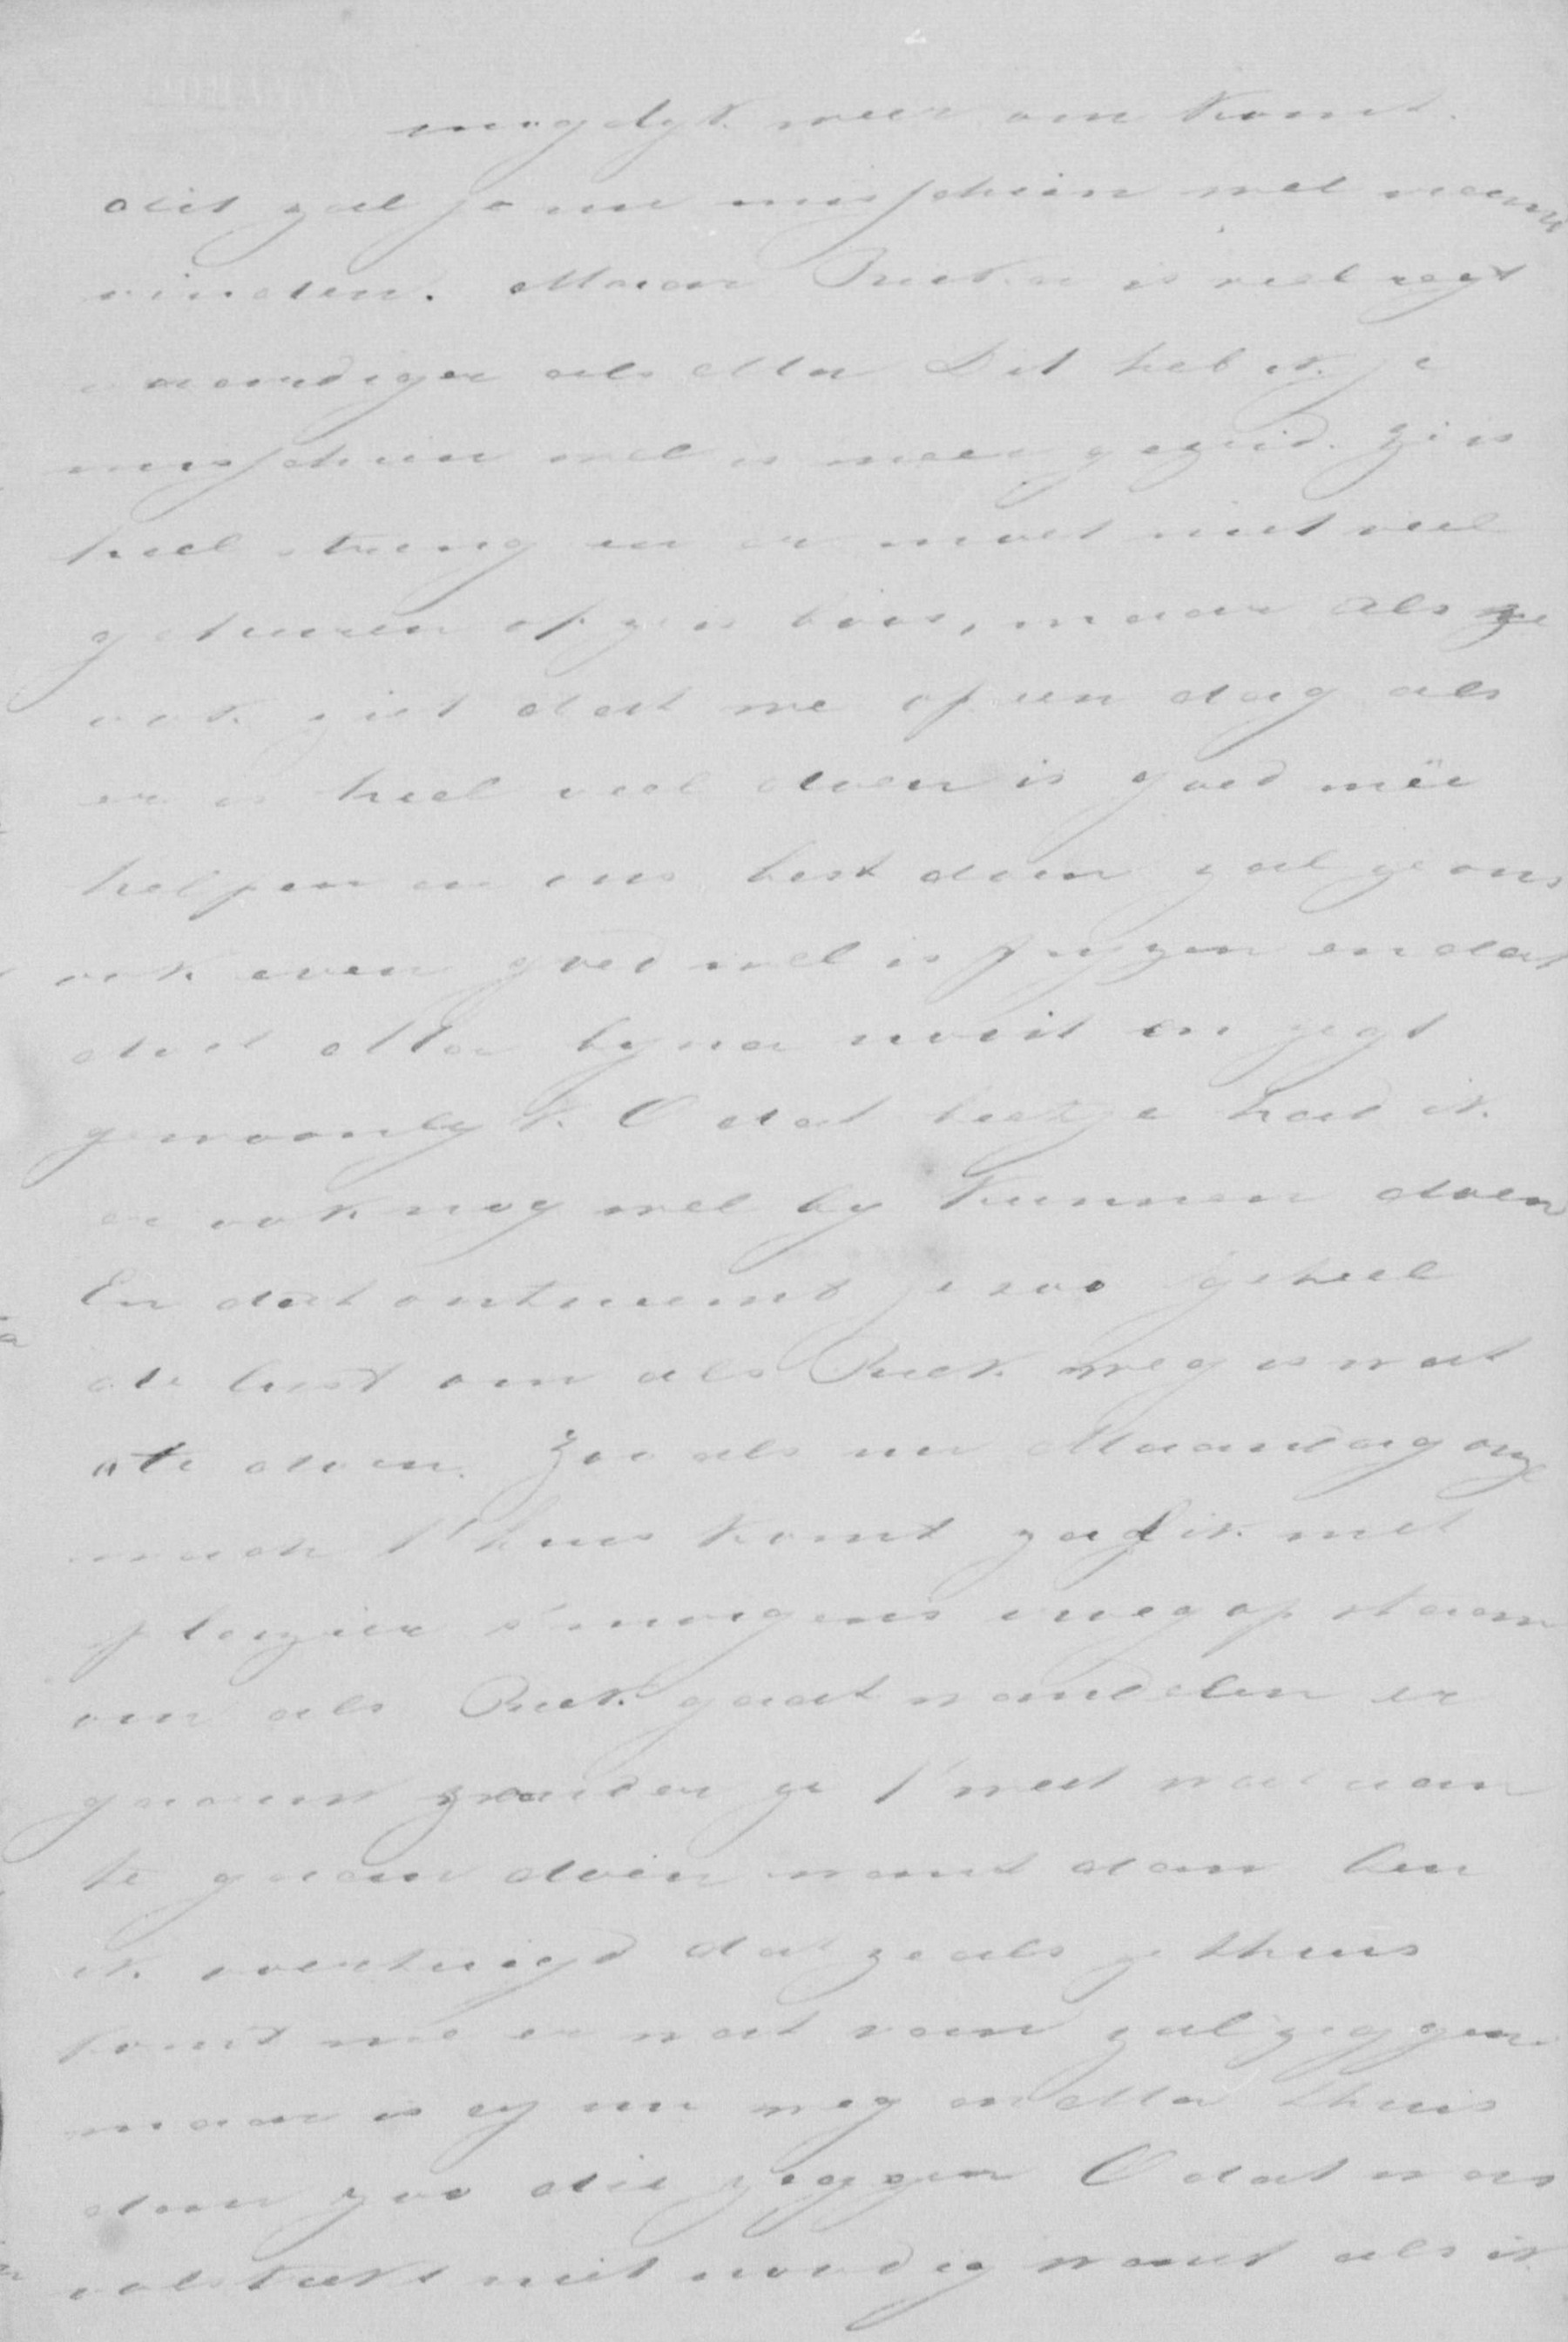 mogelyk weer om komt.
dit zal je nu misschien wel vreemd
vinden. Maar is veel regt
vaardiger als Ma Dit heb ik je
misschien wel is meer gezeid. Zi is
heel streng en er moet niet veel
gebeuren of ze is boos, maar als ze
ook ziet dat we op een dag als
er is heel veel doen is goed mëe
helpen en ons best doen zal ze ons
ook even goed wel is pryzen en dat
doet Ma byna nooit en zegt
gewoonlyk. O dat beetje had ik
er ook nog wel by kunnen doen
En dat ontneemt je zoo geheel
de lust om als weg is wat
te doen. Zoo als nu Maandag onze
wasch t'huis komt zal ik met
plezier s'morgens vroeg op staan
om als gaat wandelen er
gaauw zonder ze 't weet wat aan
te gaan doen want dan ben
ik overtuigd dat ze als ze thuis
komt me er wat van zal zeggen.
maar is zy nu weg en Ma thuis
dan zoo die zeggen O dat was
volstrekt niet noodig want als ik